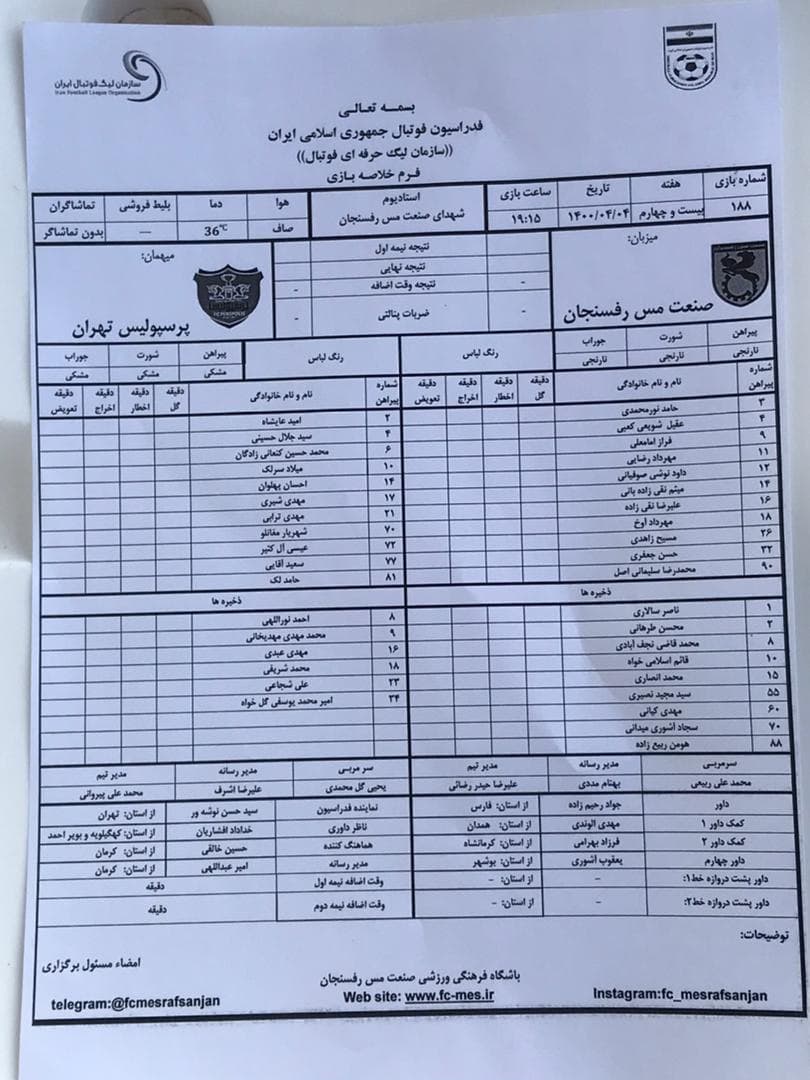 سازمان لیگ فوتبال ایران
Iran Football League Organization
بسمه تعالی
فدراسیون فوتبال جمهوری اسلامی ایران
((سازمان لیگ حرفه ای فوتبال))
فرم خلاصه بازی
شماره بازی هفته تاریخ ساعت بازی استادیوم هوا دما بلیط فروشی تماشاگران
۱۸۸ بیست و چهارم ۱۴۰۰/۰۴/۰۴ ۱۹:۱۵ شهدای صنعت مس رفسنجان صاف 36°C — بدون تماشاگر
میزبان: نتیجه نیمه اول میهمان:
نتیجه نهایی
- نتیجه وقت اضافه -
صنعت مس رفسنجان - ضربات پنالتی - پرسپولیس تهران
پیراهن شورت جوراب رنگ لباس رنگ لباس پیراهن شورت جوراب
نارنجی نارنجی نارنجی مشکی مشکی مشکی
شماره پیراهن نام و نام خانوادگی دقیقه گل دقیقه اخطار دقیقه اخراج دقیقه تعویض شماره پیراهن نام و نام خانوادگی دقیقه گل دقیقه اخطار دقیقه اخراج دقیقه تعویض
۳ حامد نورمحمدی ۲ امید عایشاه
۴ عقیل شویعی کعبی ۴ سید جلال حسینی
۹ فراز امامعلی ۶ محمد حسین کنعانی زادگان
۱۱ مهرداد رضایی ۱۰ میلاد سرلک
۱۲ داود نوشی صوفیانی ۱۴ احسان پهلوان
۱۴ میثم نقی زاده بانی ۱۷ مهدی شیری
۱۶ علیرضا نقی زاده ۲۱ مهدی ترابی
۱۸ مهرداد آوخ ۷۰ شهریار مغانلو
۲۶ مسیح زاهدی ۷۲ عیسی آل کثیر
۳۲ حسن جعفری ۷۷ سعید آقایی
۹۰ محمدرضا سلیمانی اصل ۸۱ حامد لک
ذخیره ها ذخیره ها
۱ ناصر سالاری ۸ احمد نوراللهی
۲ محسن طرهانی ۹ محمد مهدی مهدیخانی
۸ محمد قاضی نجف آبادی ۱۶ مهدی عبدی
۱۰ قائم اسلامی خواه ۱۸ محمد شریفی
۱۵ محمد انصاری ۲۳ علی شجاعی
۵۵ سید مجید نصیری ۳۴ امیر محمد یوسفی گل خواه
۶۰ مهدی کیانی
۷۰ سجاد آشوری میدانی
۸۸ هومن ربیع زاده
سرمربی مدیر رسانه مدیر تیم سر مربی مدیر رسانه مدیر تیم
محمد علی ربیعی بهنام مددی علیرضا حیدر رضائی یحیی گل محمدی علیرضا اشرف محمد علی پیروانی
داور جواد رحیم زاده از استان: فارس نماینده فدراسیون سید حسن نوشه ور از استان: تهران
کمک داور ۱ مهدی الوندی از استان: همدان ناظر داوری خداداد افشاریان از استان: کهگیلویه و بویر احمد
کمک داور ۲ فرزاد بهرامی از استان: کرمانشاه هماهنگ کننده حسین خالقی از استان: کرمان
داور چهارم یعقوب آشوری از استان: بوشهر مدیر رسانه امیر عبداللهی از استان: کرمان
داور پشت دروازه خط۱: - از استان: - وقت اضافه نیمه اول دقیقه
داور پشت دروازه خط۲: - از استان: - وقت اضافه نیمه دوم دقیقه
توضیحات:
امضاء مسئول برگزاری
باشگاه فرهنگی ورزشی صنعت مس رفسنجان
telegram:@fcmesrafsanjan Web site: www.fc-mes.ir Instagram:fc_mesrafsanjan